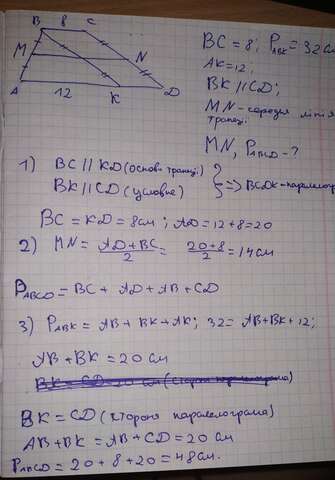 B 8 C
M N
A 12 K D
BC = 8; P_ABK = 32 см
AK = 12;
BK || CD;
MN - середня лінія
трапеції
MN, P_ABCD - ?
1) BC || KD (основи трапеції)
BK || CD (условие) } => BCDK - паралелограм
BC = KD = 8 см; AD = 12 + 8 = 20
2) MN = (AD + BC)/2 = (20 + 8)/2 = 14 см
P_ABCD = BC + AD + AB + CD
3) P_ABK = AB + BK + AK; 32 = AB + BK + 12;
AB + BK = 20 см
BK = CD (сторони паралелограма)
AB + BK = AB + CD = 20 см
P_ABCD = 20 + 8 + 20 = 48 см.